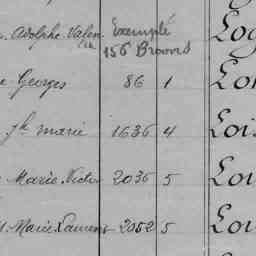 Adolphe Valen Exempté Log
tin 156 Brouns
Georges 86 1 Loi
Jh marie 1636 4 Lois
Marie Victor 2036 5 Loi
Marie Laurent 2052 5 Loi